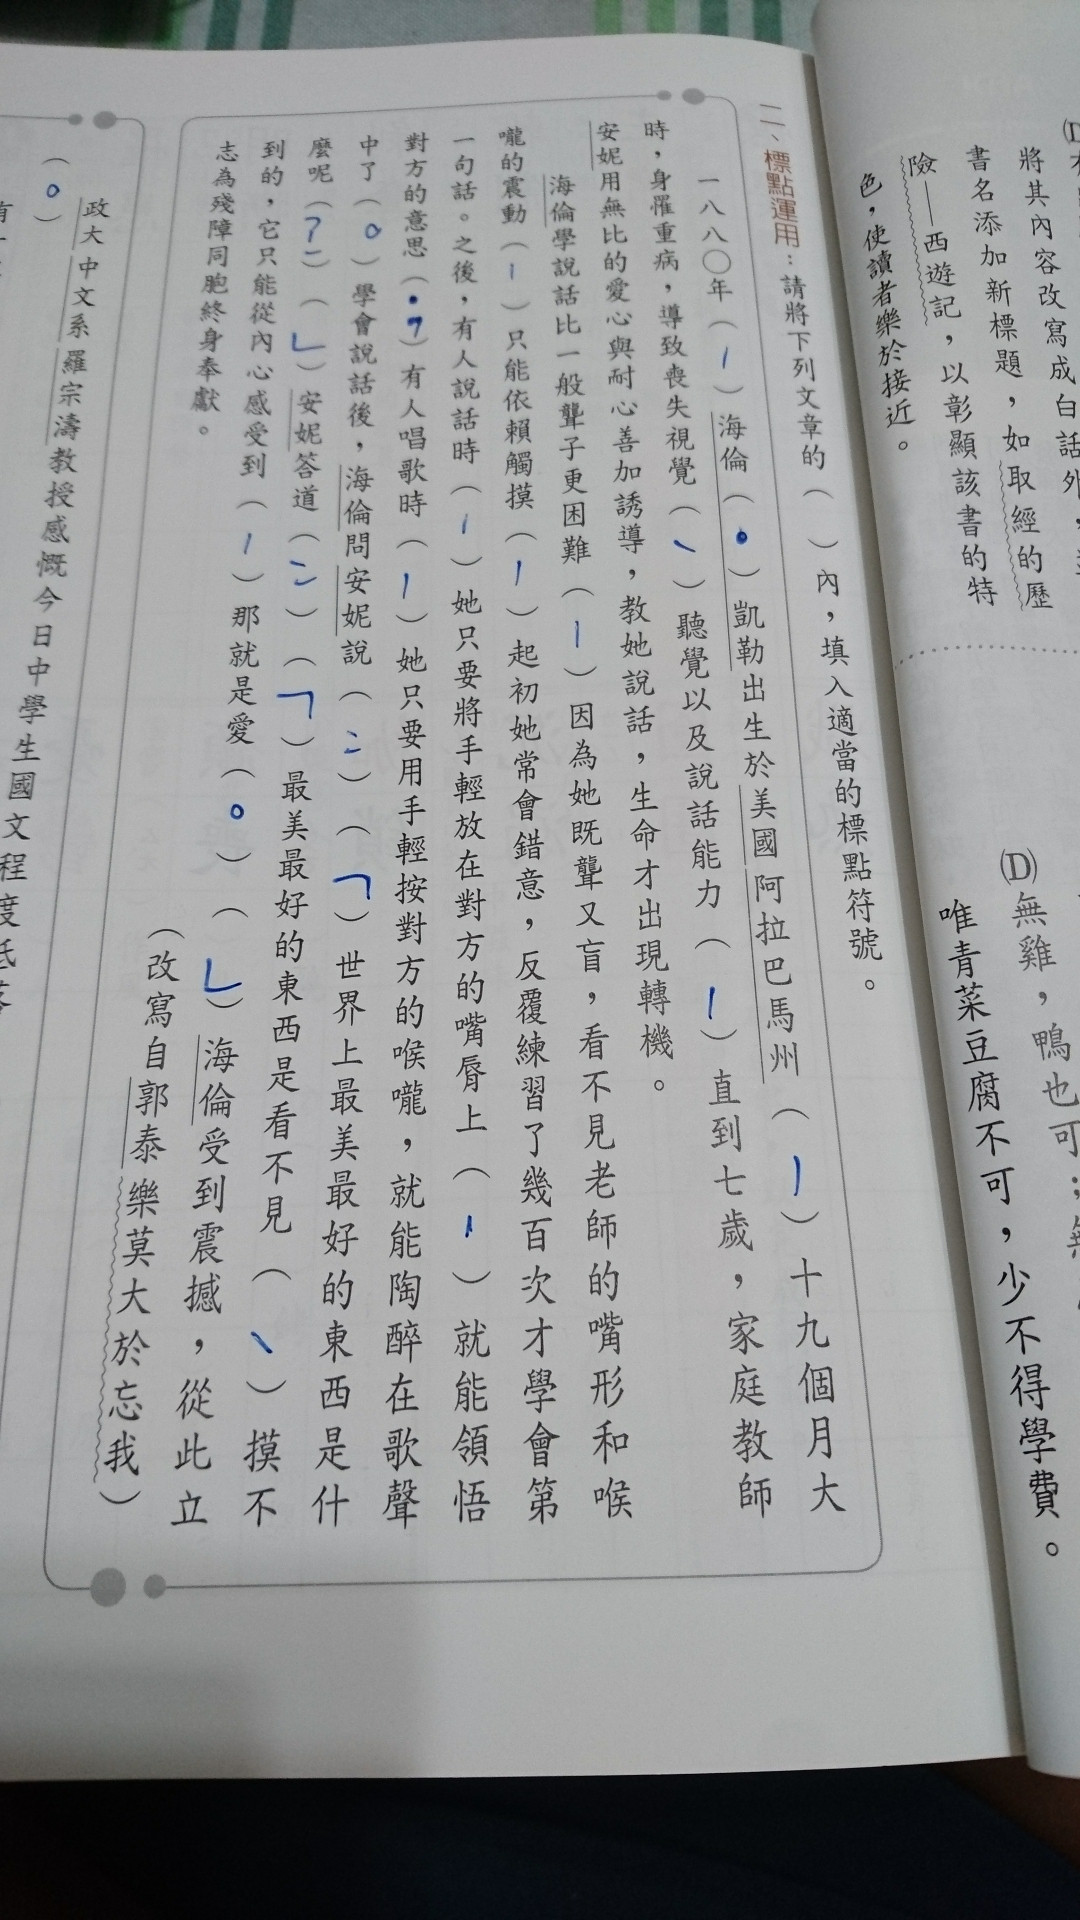 (D)
將其內容改寫成白話外，
書名添加新標題，如取經的歷
險——西遊記，以彰顯該書的特
色，使讀者樂於接近。
(D)無雞，鴨也可；無
唯青菜豆腐不可，少不得學費。
二、標點運用：請將下列文章的（　）內，填入適當的標點符號。
一八八〇年（，）海倫（•）凱勒出生於美國阿拉巴馬州（，）十九個月大
時，身罹重病，導致喪失視覺（、）聽覺以及說話能力（，）直到七歲，家庭教師
安妮用無比的愛心與耐心善加誘導，教她說話，生命才出現轉機。
海倫學說話比一般聾子更困難（，）因為她既聾又盲，看不見老師的嘴形和喉
嚨的震動（，）只能依賴觸摸（，）起初她常會錯意，反覆練習了幾百次才學會第
一句話。之後，有人說話時（，）她只要將手輕放在對方的嘴脣上（，）就能領悟
對方的意思（；）有人唱歌時（，）她只要用手輕按對方的喉嚨，就能陶醉在歌聲
中了（。）學會說話後，海倫問安妮說（：）（「）世界上最美最好的東西是什
麼呢（？）（」）安妮答道（：）（「）最美最好的東西是看不見（、）摸不
到的，它只能從內心感受到（，）那就是愛（。）（」）海倫受到震撼，從此立
志為殘障同胞終身奉獻。
（改寫自郭泰樂莫大於忘我）
政大中文系羅宗濤教授感慨今日中學生國文程度低落
（。）